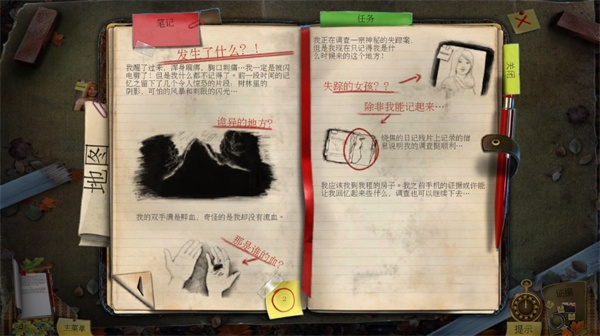 笔记
任务
发生了什么？！
我醒了过来，浑身麻痹，胸口刺痛…我一定是被闪
电击了！但是我什么都不记得了。前一段时间的记
忆之留下了几个令人惊恐的片段：树林里的
阴影，可怕的风暴和刺眼的闪光…
诡异的地方？
我的双手满是鲜血，奇怪的是我却没有流血。
那是谁的血？
地图
2
我正在调查一宗神秘的失踪案，
但是我现在只记得我是什
么时候来的这个地方！
失踪的女孩？？
除非我能记起来…
烧焦的日记残片上记录的信
息说明我的调查挺顺利…
我应该找到我租的房子。我之前手机的证据或许能
让我回忆起来些什么，调查也可以继续下去…
关闭
主菜单
提示